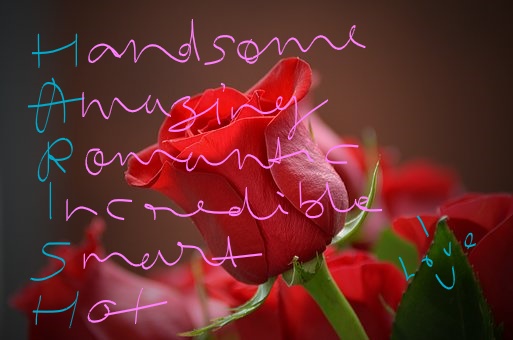 Handsome
Amazing
Romantic
Incredible
Smart
Hot
I love U